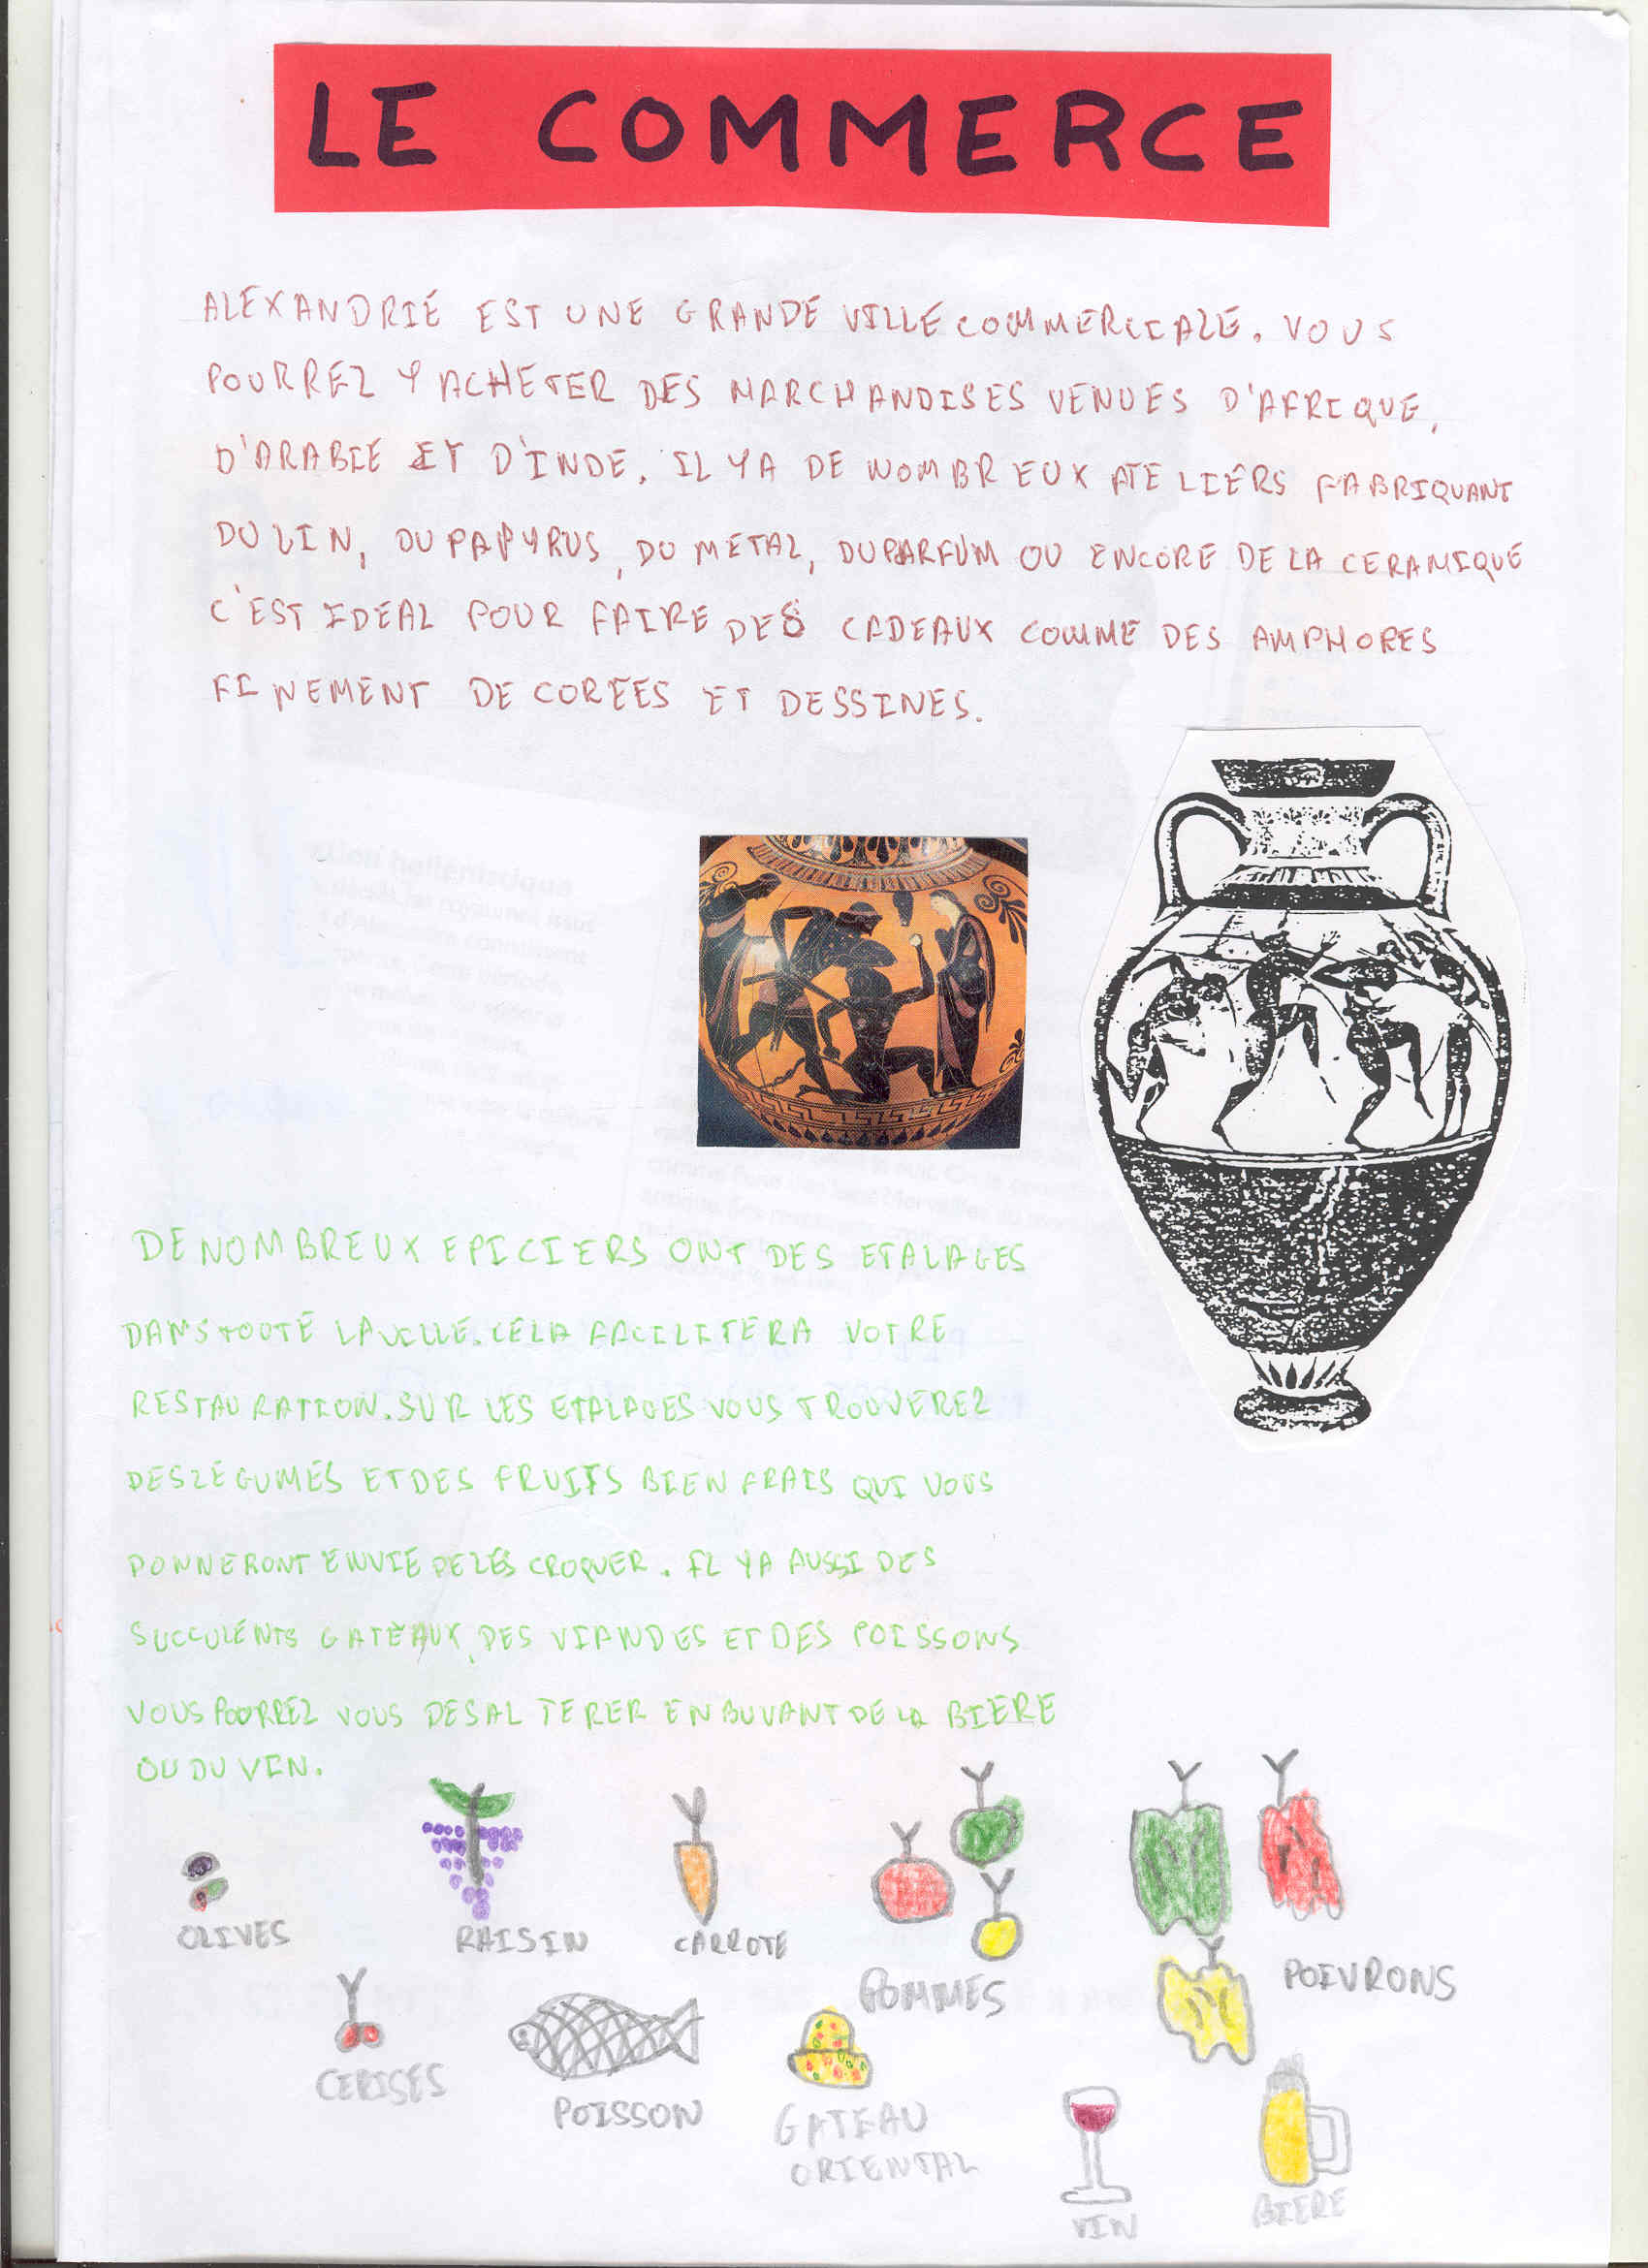 LE COMMERCE
ALEXANDRIE EST UNE GRANDE VILLE COMMERCIALE. VOUS
POURREZ Y ACHETER DES MARCHANDISES VENUES D'AFRIQUE,
D'ARABIE ET D'INDE. IL Y A DE NOMBREUX ATELIERS FABRIQUANT
DU LIN, DU PAPYRUS, DU METAL, DU PARFUM OU ENCORE DE LA CERAMIQUE
C'EST IDEAL POUR FAIRE DES CADEAUX COMME DES AMPHORES
FINEMENT DECOREES ET DESSINES.
DE NOMBREUX EPICIERS ONT DES ETALAGES
DANS TOUTE LA VILLE. CELA FACILITERA VOTRE
RESTAURATION. SUR LES ETALAGES VOUS TROUVEREZ
DES LEGUMES ET DES FRUITS BIEN FRAIS QUI VOUS
DONNERONT ENVIE DE LES CROQUER. IL Y A AUSSI DES
SUCCULENTS GATEAUX, DES VIANDES ET DES POISSONS
VOUS POURREZ VOUS DESALTERER EN BUVANT DE LA BIERE
OU DU VIN.
OLIVES
RAISIN
CARROTE
POMMES
POIVRONS
CERISES
POISSON
GATEAU
ORIENTAL
VIN
BIERE